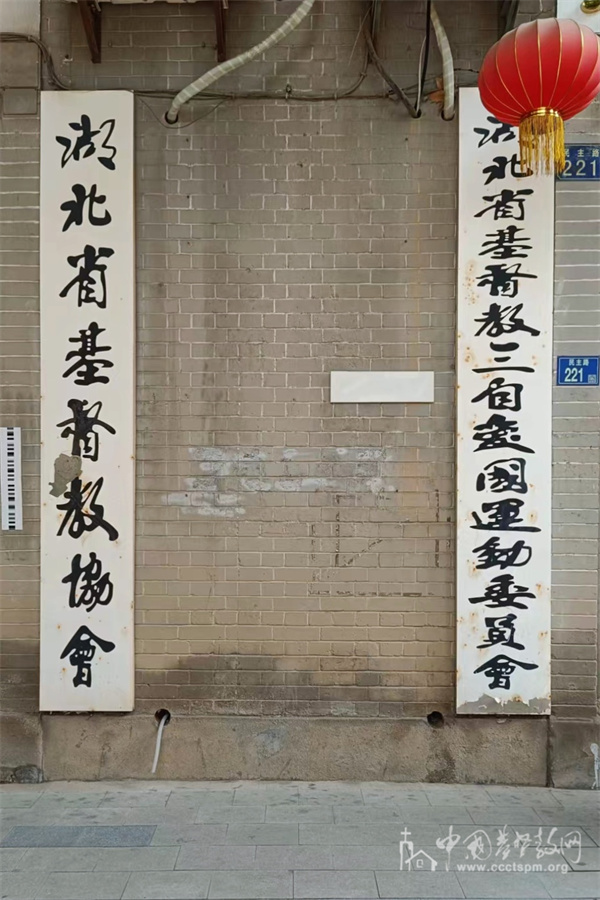 湖北省基督教協會
湖北省基督教三自愛國運動委員會
民主路
221
民主路
221
中国基督教网
www.ccctspm.org